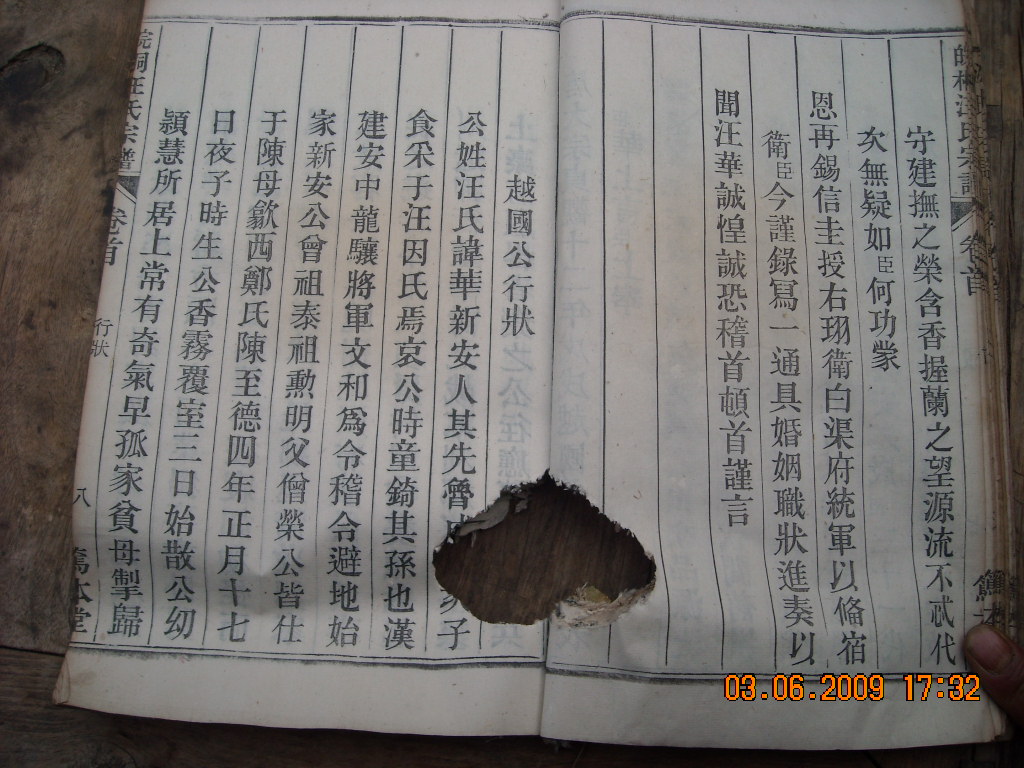 守建撫之榮含香握蘭之望源流不忒代
次無疑如臣何功蒙
恩再錫信圭授右珝衛白渠府統軍以俻宿
衛臣今謹錄寫一通具婚姻職狀進奏以
聞汪華誠惶誠恐稽首頓首謹言
越國公行狀
公姓汪氏諱華新安人其先魯
子
食采于汪因氏焉哀公時童錡其孫也漢
建安中龍驤將軍文和為令稽令避地始
家新安公曾祖泰祖勲明父僧榮公皆仕
于陳母歙西鄭氏陳至德四年正月十七
日夜子時生公香霧覆室三日始散公幼
頴慧所居上常有奇氣早孤家貧母掣歸
汪氏宗譜
卷首
行狀
八
卷首
03.06.2009 17:32